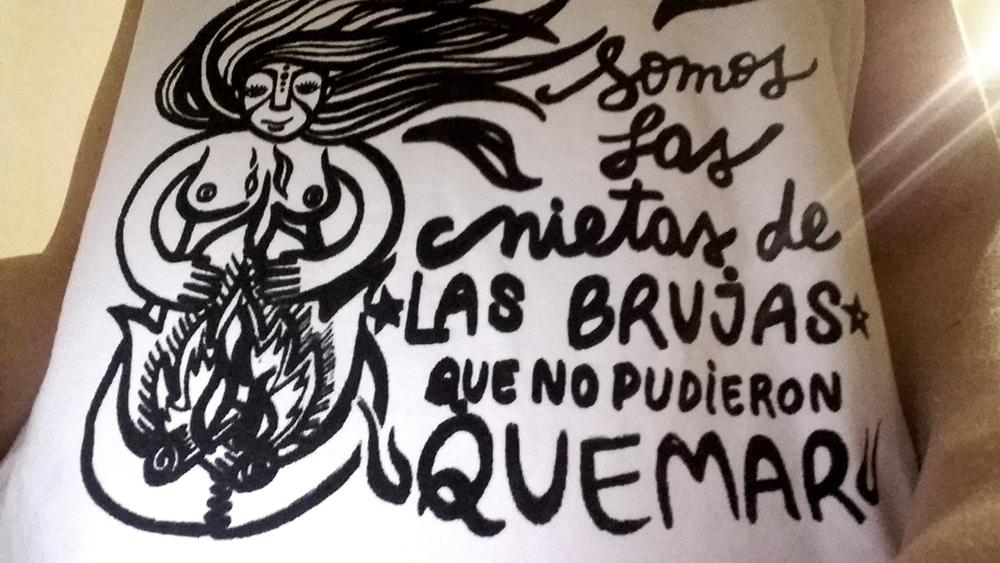 Somos
las
nietas de
LAS BRUJAS
QUE NO PUDiERON
QUEMAR